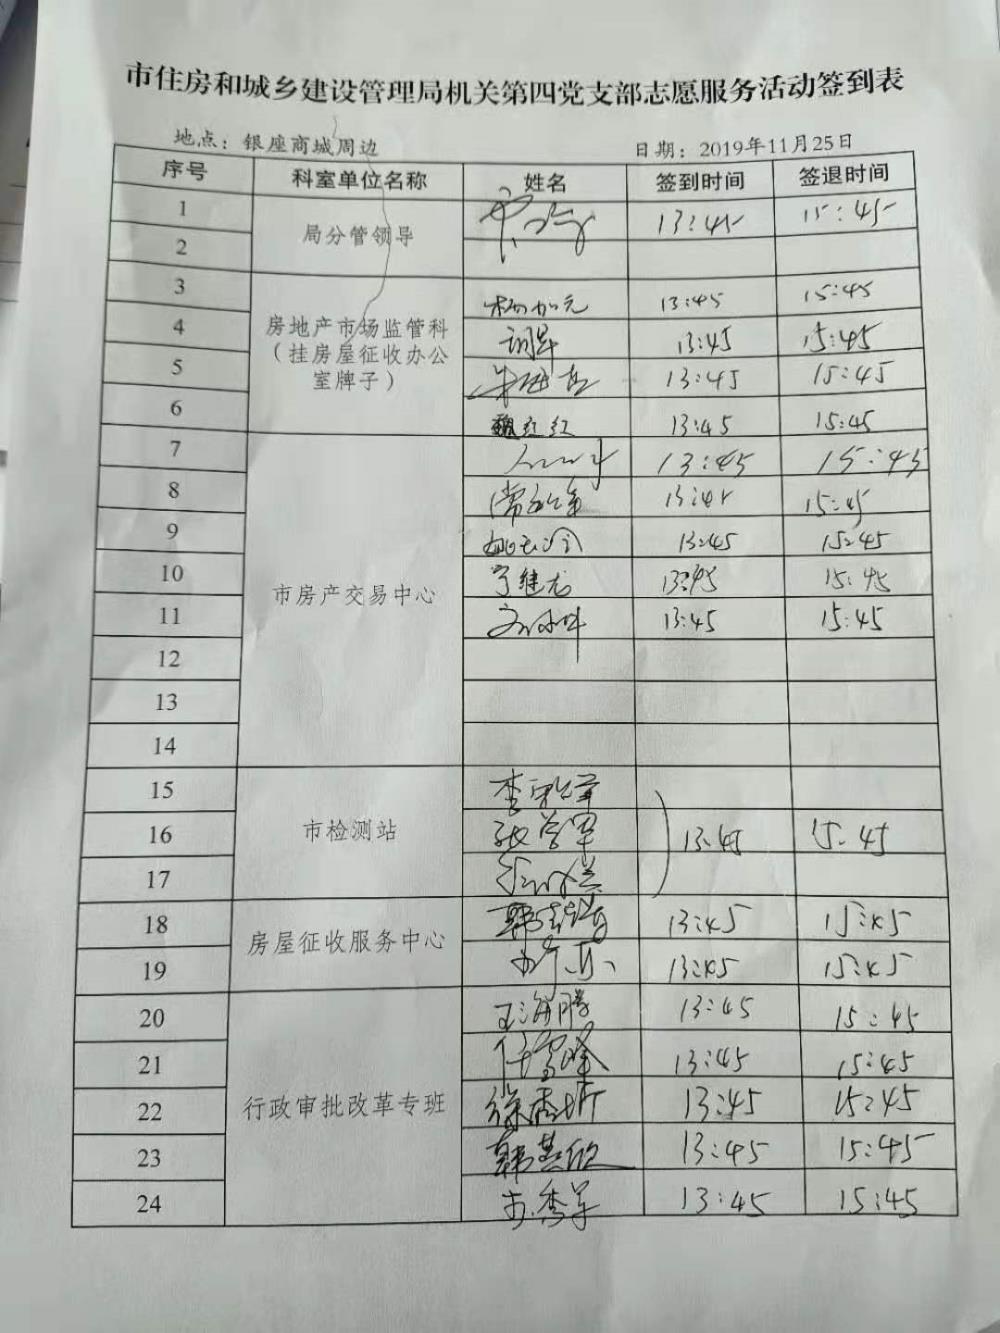 市住房和城乡建设管理局机关第四党支部志愿服务活动签到表
地点：银座商城周边 日期：2019年11月25日
序号 科室单位名称 姓名 签到时间 签退时间
1 局分管领导 13:45 15:45
2
3 房地产市场监管科（挂房屋征收办公室牌子） 杨加元 13:45 15:45
4 13:45 15:45
5 13:45 15:45
6 魏红红 13:45 15:45
7 市房产交易中心 13:45 15:45
8 13:45 15:45
9 13:45 15:45
10 宁继龙 13:45 15:45
11 13:45 15:45
12
13
14
15 市检测站
16 张学军 13:45 15:45
17
18 房屋征收服务中心 13:45 15:45
19 13:45 15:45
20 行政审批改革专班 王海腾 13:45 15:45
21 任雪峰 13:45 15:45
22 13:45 15:45
23 韩其欣 13:45 15:45
24 13:45 15:45